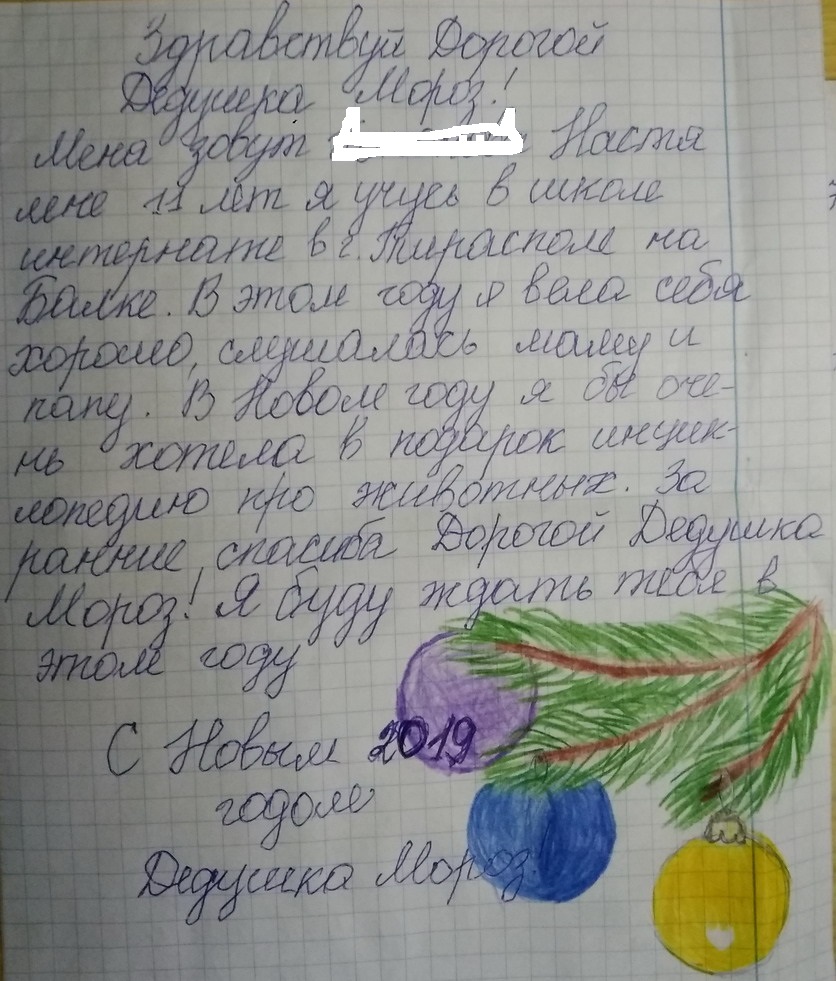 Здравствуй Дорогой
Дедушка Мороз!
Меня зовут Настя
мене 11 лет я учусь в школе
интернате в г. Тирасполе на
Балке. В этом году я вела себя
хорошо, слушалась маму и
папу. В Новом году я бы оче-
нь хотела в подарок инцик-
лопедию про животных. За
ранние спасиба Дорогой Дедушка
Мороз! Я буду ждать тебя в
этом году
С Новым 2019
годом
Дедушка Мороз!